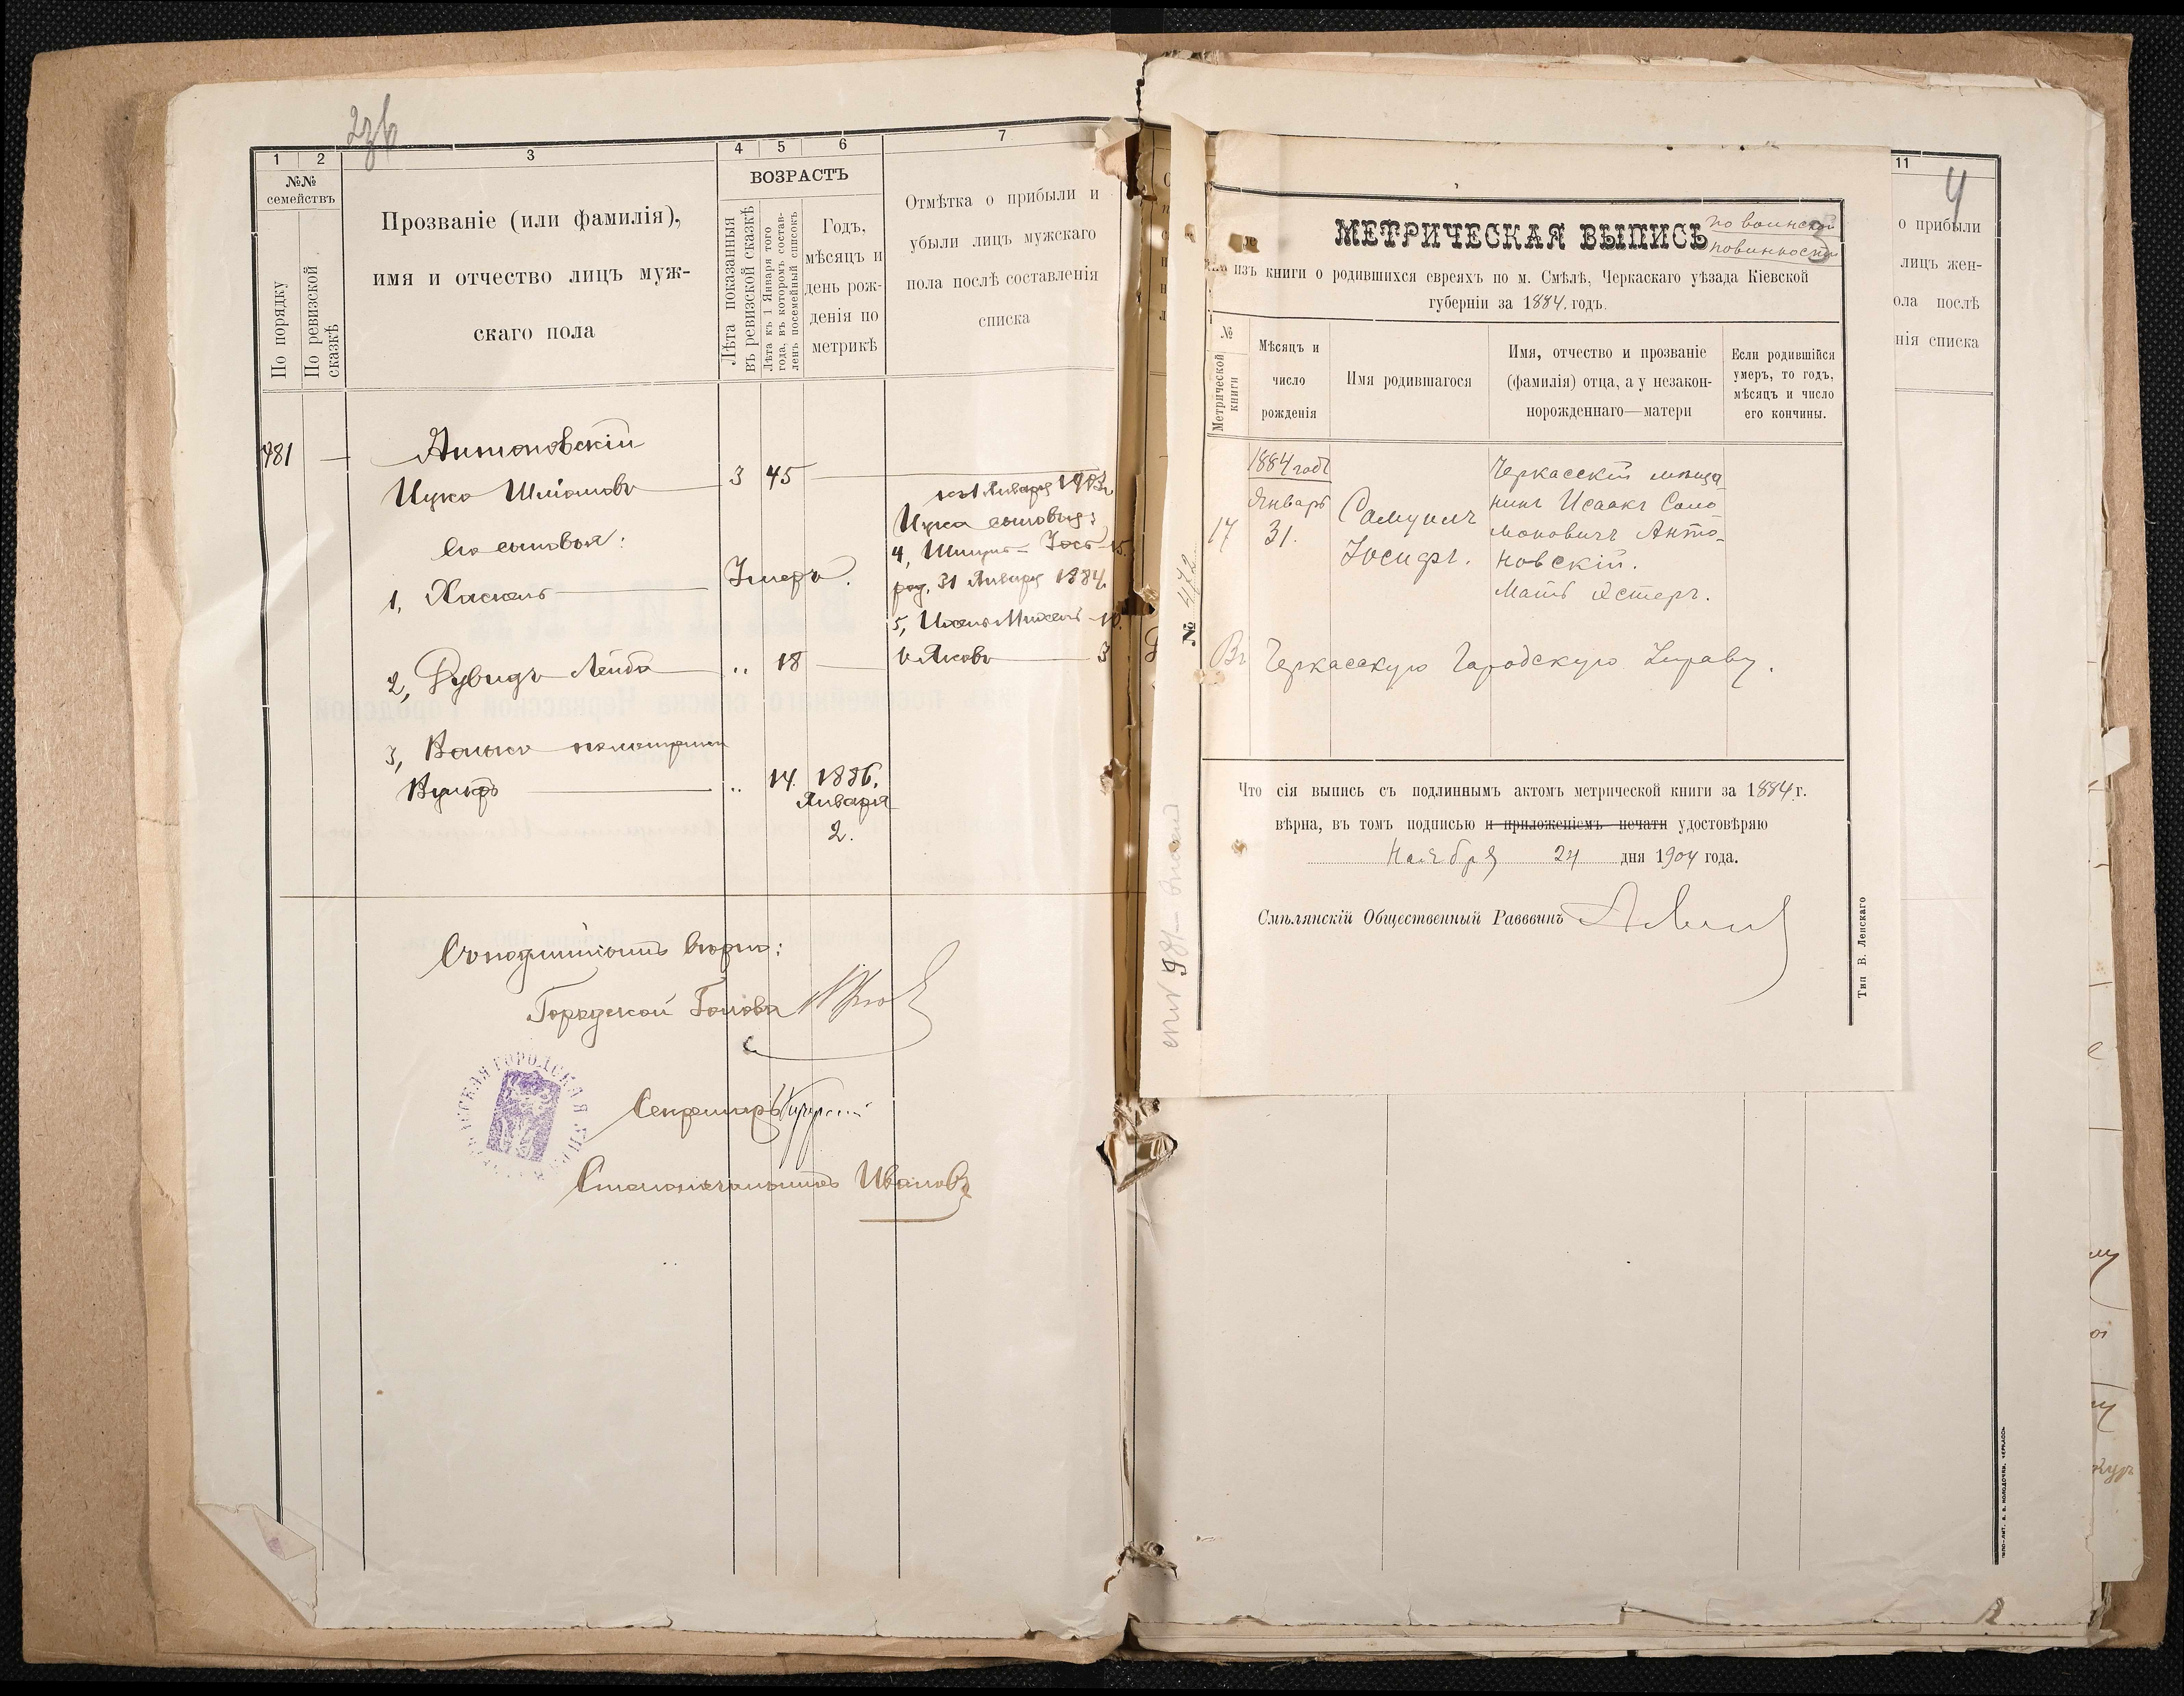 1
2
3
4
5
6
7
№№
семействъ
По порядку
По ревизской
сказкѣ
Прозваніе (или фамилія),
имя и отчество лицъ муж-
скаго пола
ВОЗРАСТЪ
Лѣта показанныя
въ ревизской сказкѣ
Лѣта къ 1 Января того
года, въ которомъ состав-
ленъ посемейный списокъ
Годъ,
мѣсяцъ и
день рож-
денія по
метрикѣ
Отмѣтка о прибыли и
убыли лицъ мужскаго
пола послѣ составленія
списка
481 —
Антоновскій
Ицко Шліомовъ 3 45
Его сыновья:
1, Хаскель Умеръ.
2, Дувидъ Лейба „ 18
3, Волько
Вульфъ „ 14. 1886.
Января
2.
Января 1903
Ицка сыновья:
4, Шмуль-Іосъ 15.
род. 31 Января 1884.
5, 10.
Яковъ 3
Съ подлиннымъ вѣрно:
Городской Голова
Секретарь
Столоначальникъ Ивановъ
ГОРОДСКАЯ
11
4
о прибыли
лицъ жен-
ола послѣ
нія списка
МЕТРИЧЕСКАЯ ВЫПИСЬ по воинской
повинности
изъ книги о родившихся евреяхъ по м. Смѣлѣ, Черкаскаго уѣзда Кіевской
губерніи за 1884. годъ.
№
Метрической
книги
Мѣсяцъ и
число
рожденія
Имя родившагося
Имя, отчество и прозваніе
(фамилія) отца, а у незакон-
норожденнаго—матери
Если родившійся
умеръ, то годъ,
мѣсяцъ и число
его кончины.
17
1884 годъ
Январь
31.
Самуилъ
Іосифъ.
Черкасскій мѣща
нинъ Исаакъ Соло
моновичъ Анто-
новскій.
Мать Эстеръ.
Въ Черкасскую Городскую Управу.
Что сія выпись съ подлиннымъ актомъ метрической книги за 1884 г.
вѣрна, въ томъ подписью и приложеніемъ печати удостовѣряю
Ноября 24 дня 1904 года.
Смѣлянскій Общественный Раввинъ
Тип В. Ленскаго
№ 472